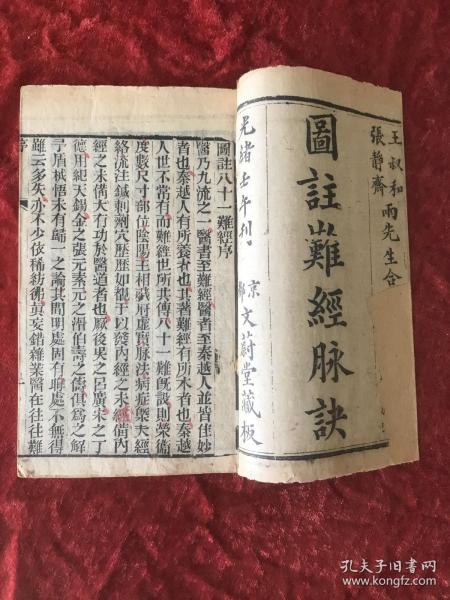 王叔和
張靜齋
兩先生合
圖註難經脉訣
光緒壬午刊
京
都
文蔚堂藏板
圖註八十一難經序
醫乃九流之一醫書至難經醫者至秦越人並皆佳妙
者也秦越人有所養者也其著難經有所本者也秦越
人世不常有而難經世所共傳八十一難旣設則榮衛
度數尺寸部位陰陽王相臟府虛實脉法病症槩夫經
絡流注鍼刺劑穴歷歷如覩于以發內經之未經備內
經之未備大有功於醫道者也厥後吳之呂廣宋之丁
德用紀天錫金之張元素元之滑伯壽之儔俱爲之觧
子盾杌悟未有歸一之論其間明處固有晦處不無得
難云多失亦不少依稀紡彿眞妄錯雜業醫在往往難
序
一
孔夫子旧书网
www.kongfz.com